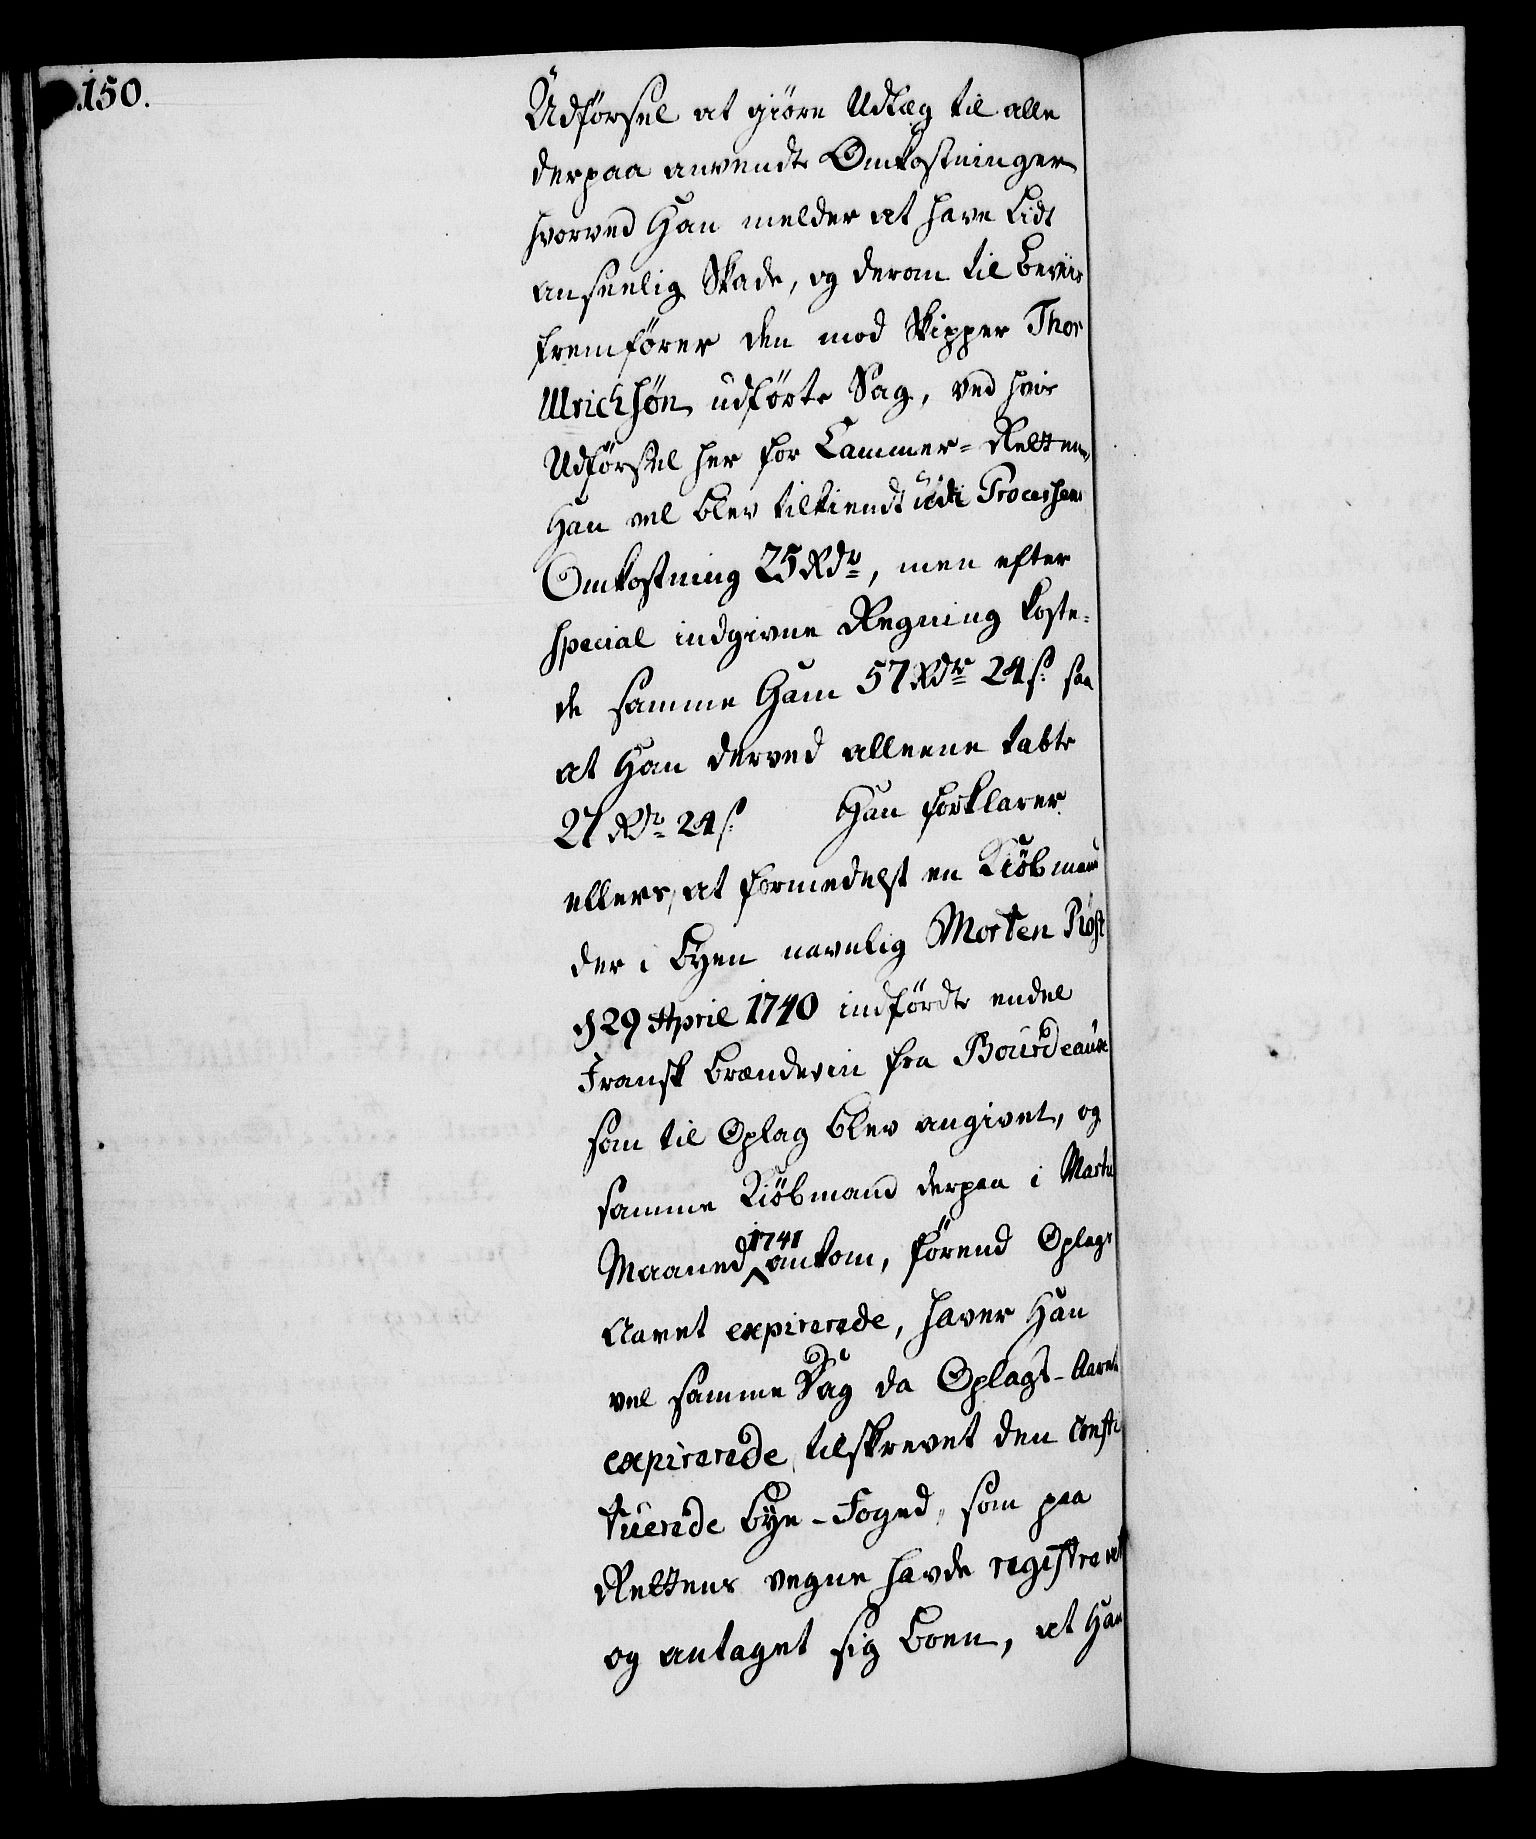 150.
Udförsel at giöre Udlæg til alle
derpaa anvendte Omkostninger
hvorved Han melder at have Lidt
anseelig Skade, og derom til Beviis
fremförer den mod Skipper Thor
Ulrichsön udförte Sag, ved hvis
Udförsel her for Cammer-Retten,
Han vel blev tilkiendt udi Processens
Omkostning 25 Rdr, men efter
special indgivne Regning koste-
de samme Ham 57 Rdr 24 s: saa
at Han derved alleene tabte
27 Rdr 24 s: Han forklarer
ellers, at formedelst en Kiöbmand
der i Byen navnlig Morten Röst
d 29 April 1740 indfördte endel
Fransk Brændeviin fra Bourdeaux
som til Oplag blev angivet, og
samme Kiöbmand derpaa i Martii
Maaned 1741 omkom, förend Oplags
Aaret expirerede, haver Han
vel samme Dag da Oplags-Aaret
expirerede, tilskrevet den Consti-
tuerede Bye-Foged, som paa
Rettens vegne havde registreret
og antaget sig Boen, at Han